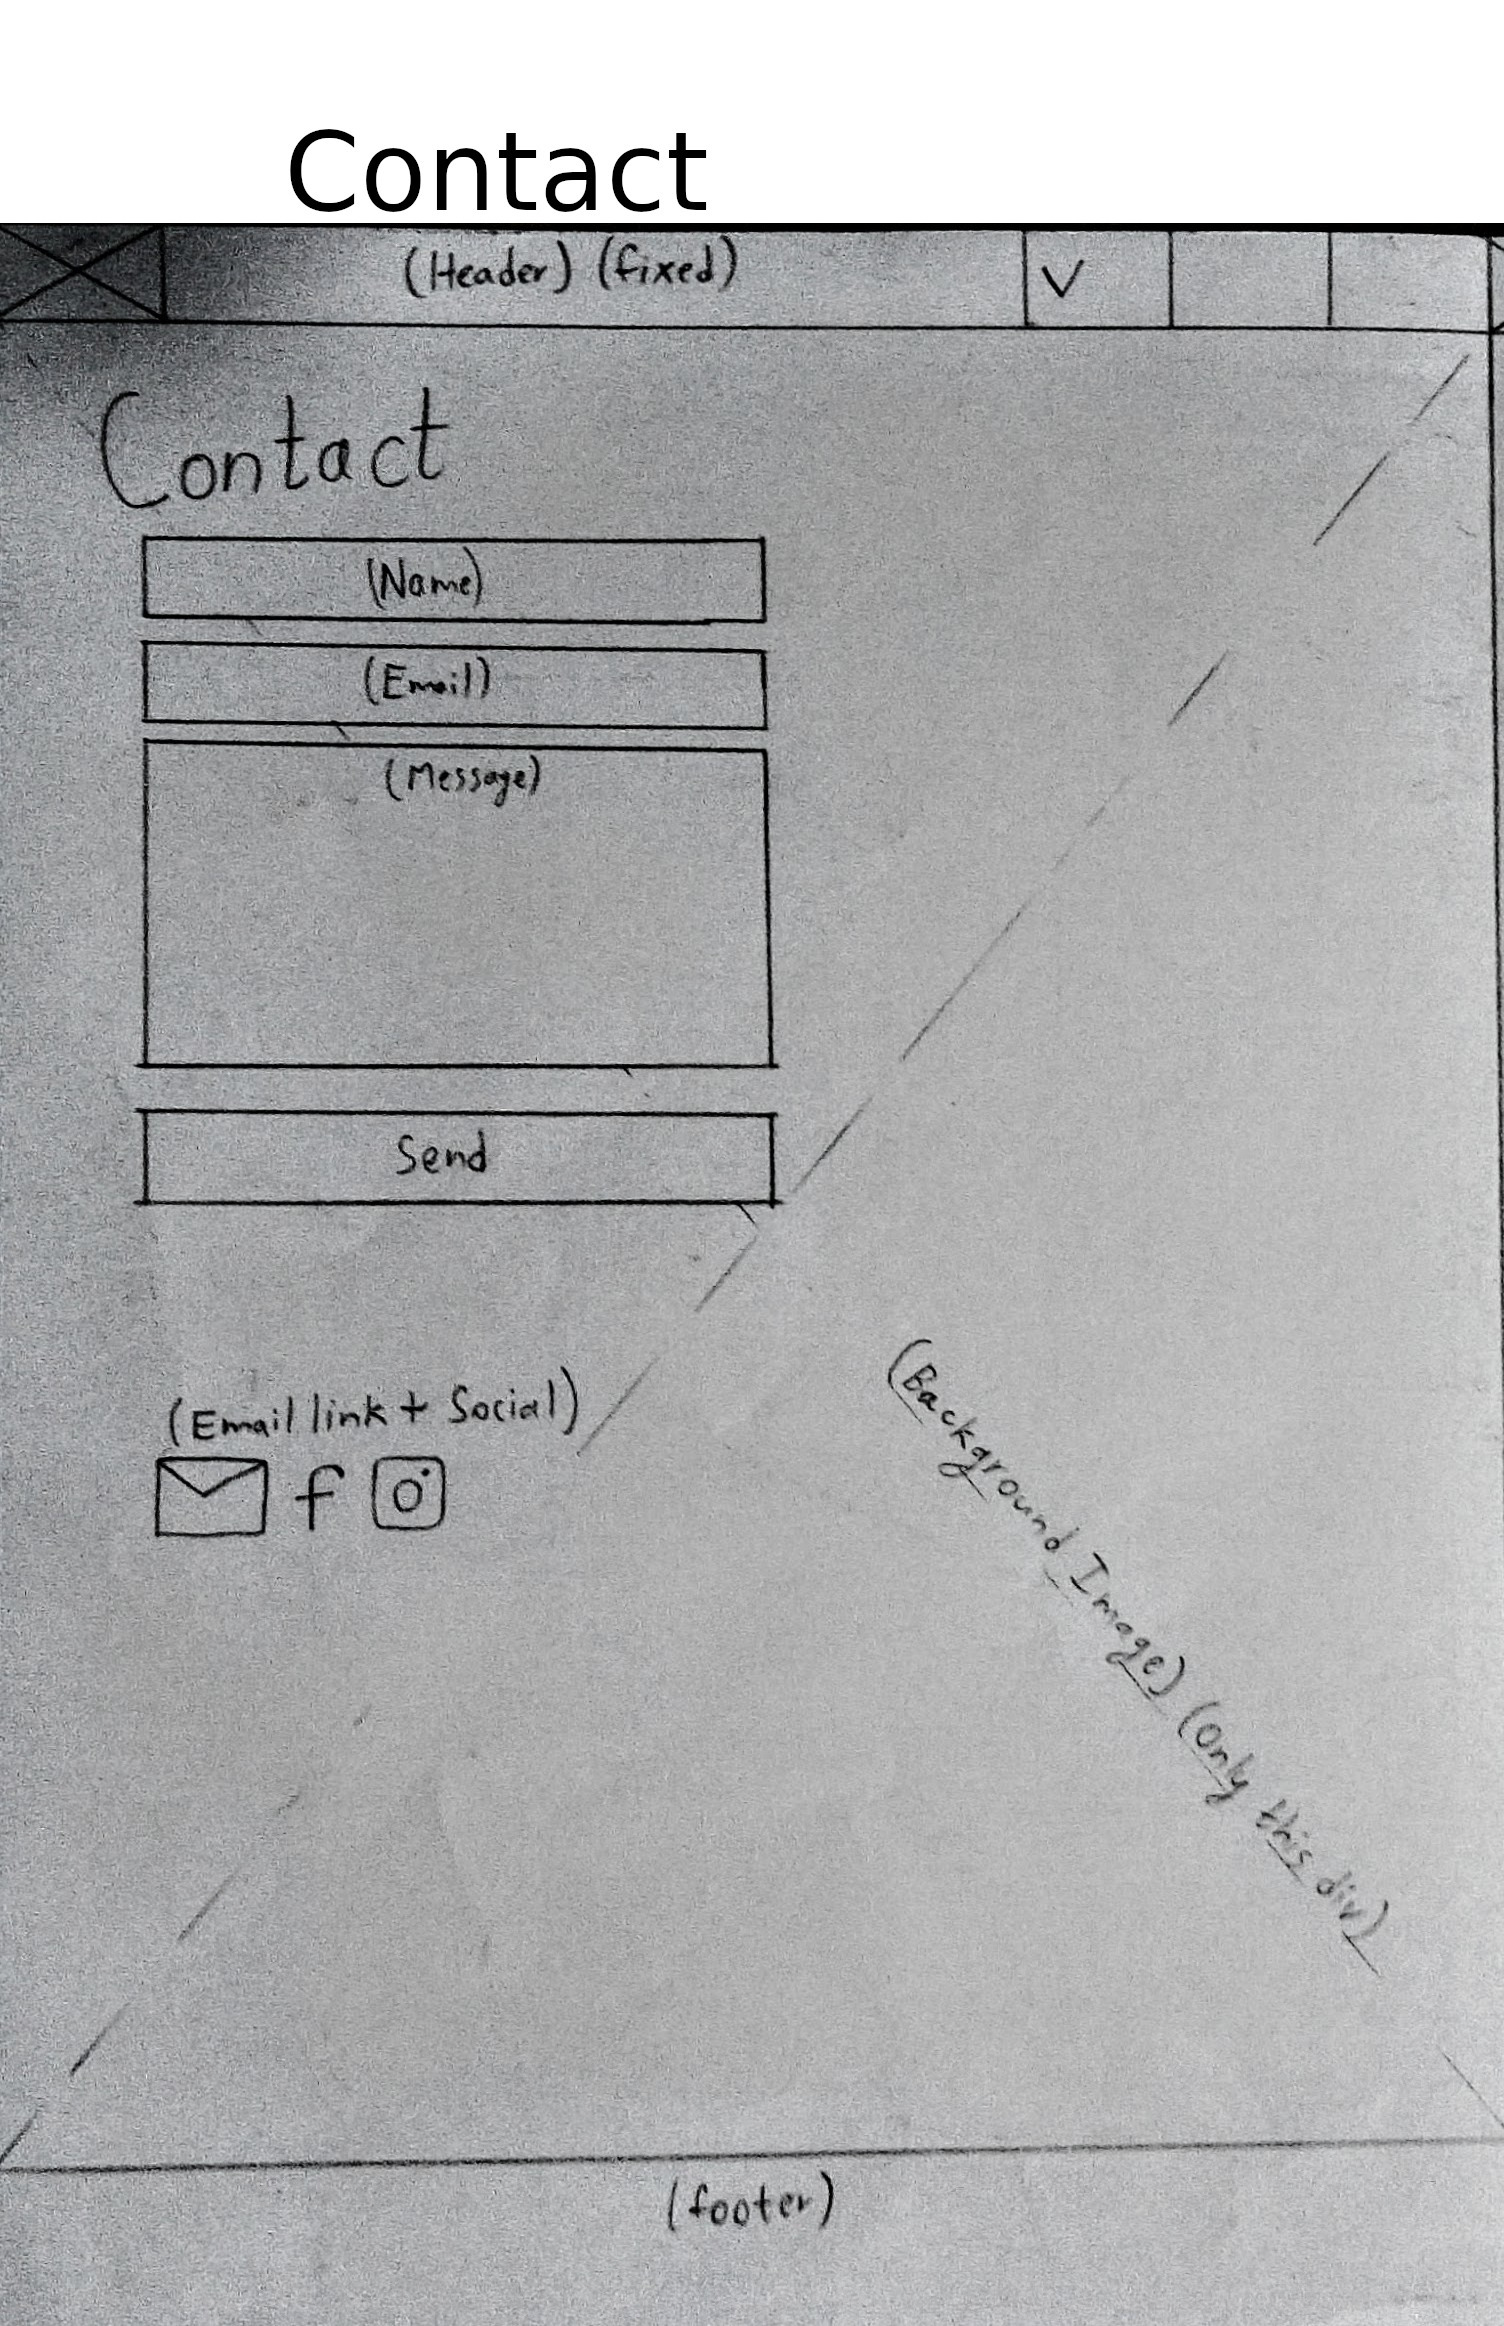 Contact
(Header) (fixed)
Contact
(Name)
(Email)
(Message)
Send
(Email link + Social)
f
(Background Image) (Only this div)
(footer)